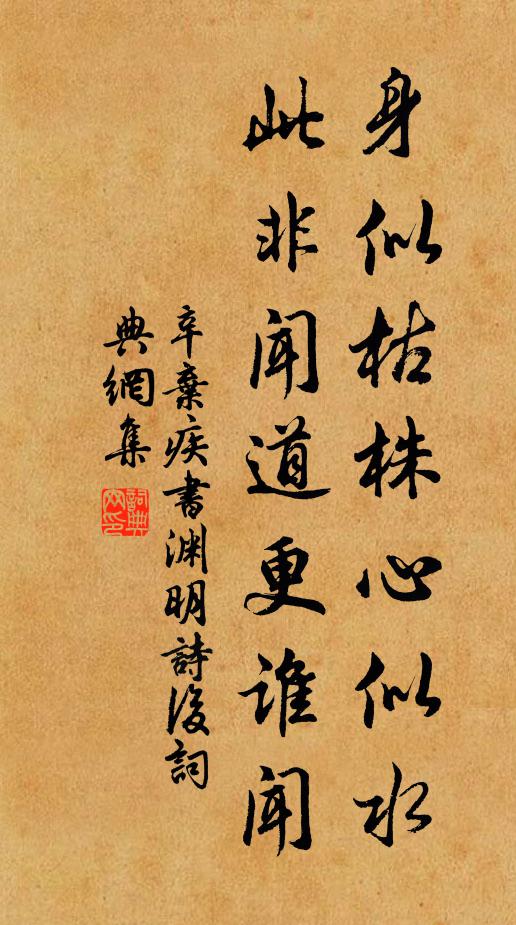 身似枯株心似水
此非闻道更谁闻
辛棄疾書渊明詩後詞
典網集
詞典网印